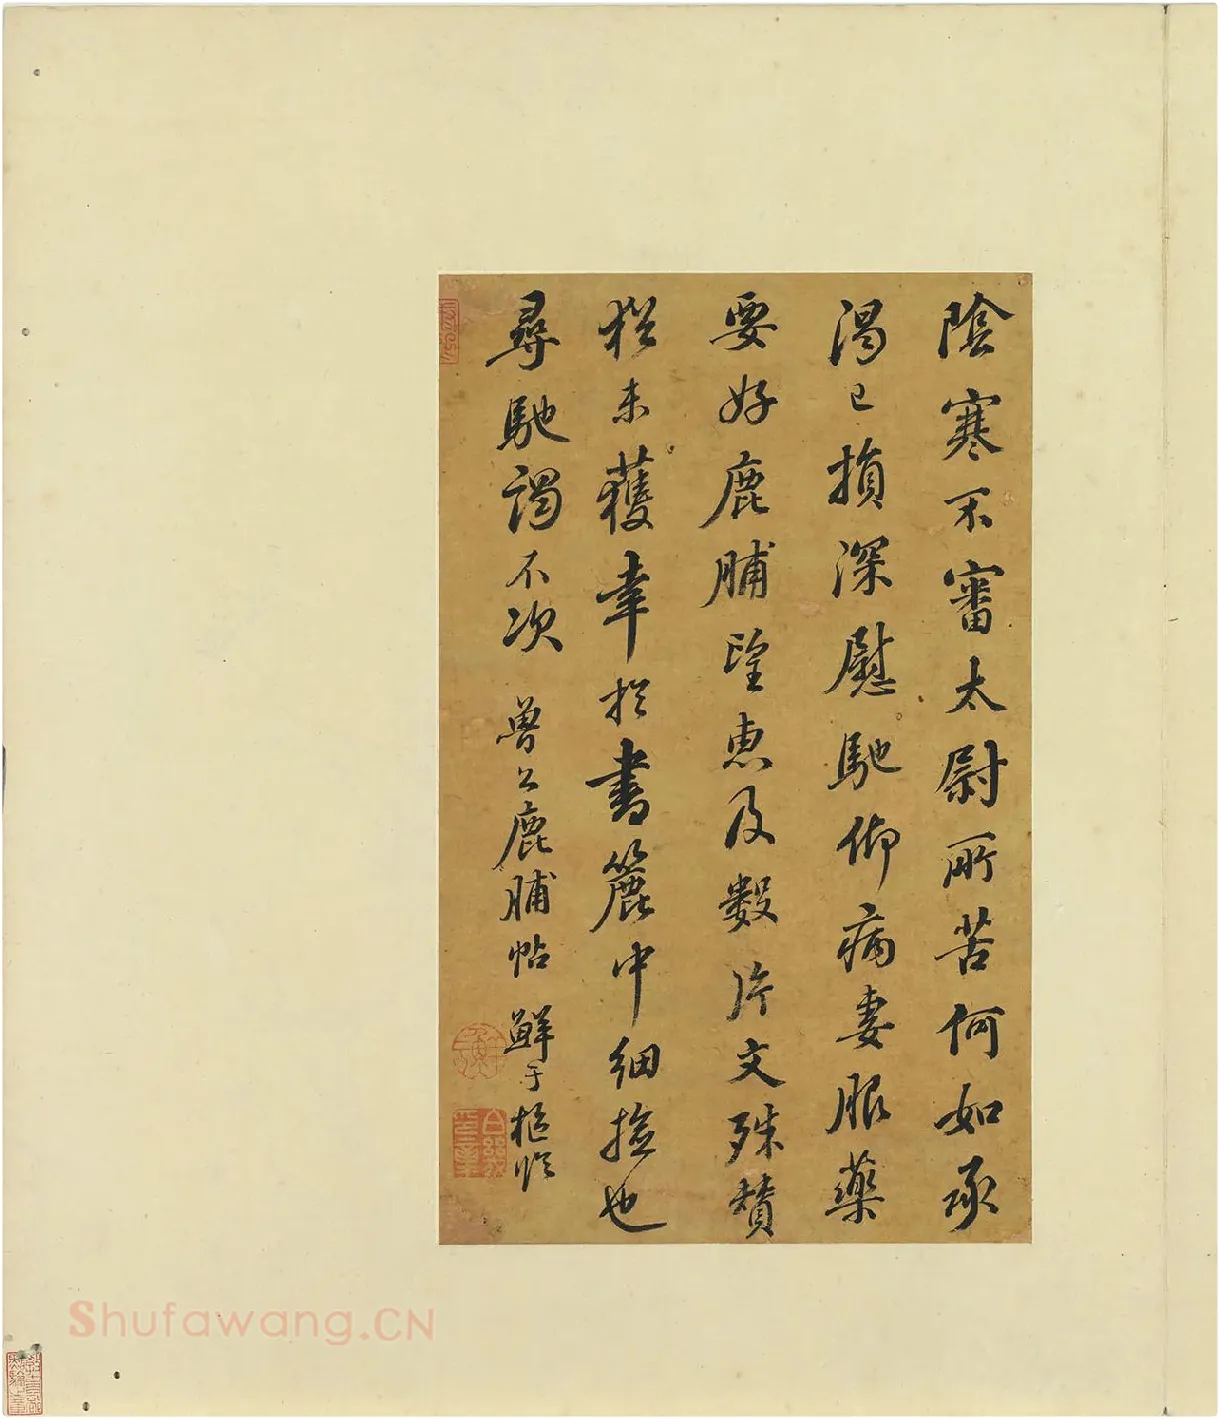 陰寒不審太尉所苦何如承
渴已損深慰馳仰病妻服藥
要好鹿脯望惠及數片文殊贊
猶未獲幸於書簏中細撿也
尋馳謁不次 魯公鹿脯帖 鮮于樞臨
Shufawang.CN